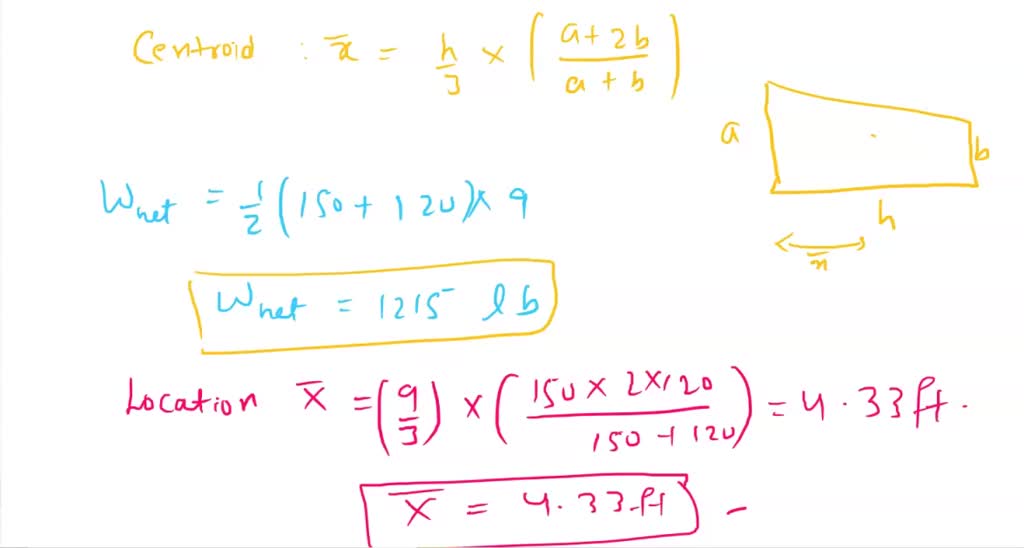 Centroid : x̄ = h/3 × ( (a + 2b) / (a + b) )
a
b
h
x̄
Wnet = 1/2 (150 + 120) × 9
Wnet = 1215 lb
Location X̄ = (9/3) × ( (150 × 2 × 120) / (150 + 120) ) = 4.33 ft.
X̄ = 4.33 ft